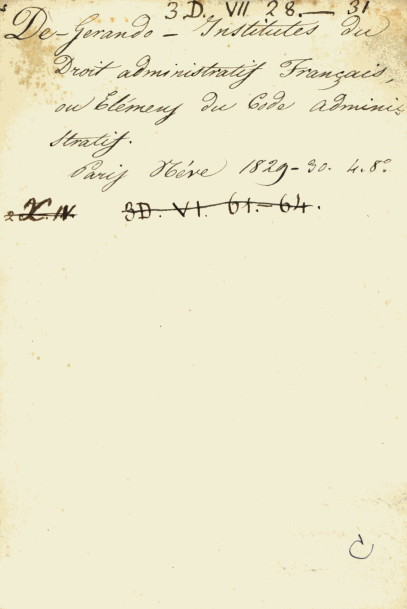 3 D. VII 28. — 31
De-Gerando - Institutes du
Droit administratif Français,
ou Elémens du Code adminis-
stratif.
Paris Nève 1829-30. 4. 8º.
X. IV. 3D. VI. 61.-64.
C